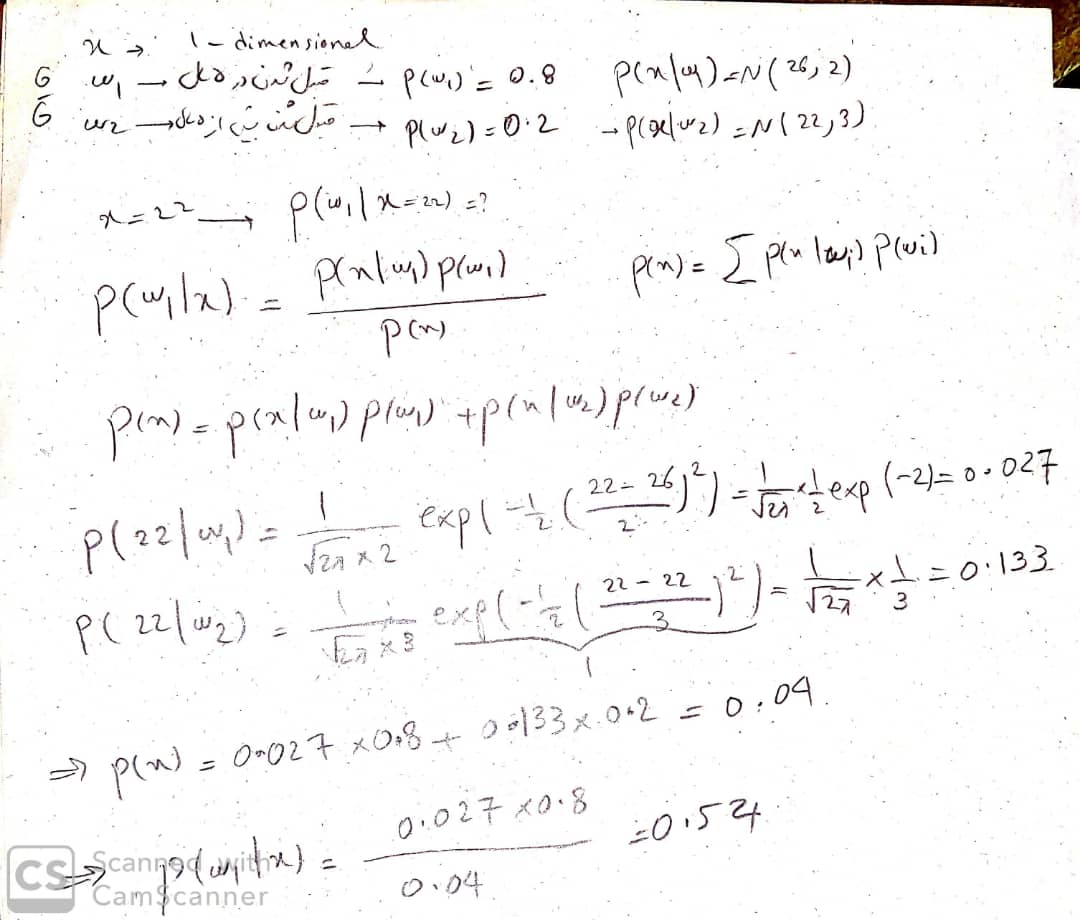 x → 1-dimensional
ω₁ → → P(ω₁) = 0.8 P(x|ω₁) = N(26, 2)
ω₂ → → P(ω₂) = 0.2 → P(x|ω₂) = N(22, 3)
x = 22 → P(ω₁|x=22) = ?
P(ω₁|x) = P(x|ω₁) P(ω₁) / P(x) P(x) = Σ P(x|ωi) P(ωi)
P(x) = P(x|ω₁) P(ω₁) + P(x|ω₂) P(ω₂)
P(22|ω₁) = 1/(√2π × 2) exp(-1/2 ((22-26)/2)²) = 1/√2π × 1/2 exp(-2) = 0.027
P(22|ω₂) = 1/(√2π × 3) exp(-1/2 ((22-22)/3)²) = 1/√2π × 1/3 = 0.133
1
⇒ P(x) = 0.027 × 0.8 + 0.133 × 0.2 = 0.04
⇒ P(ω₁|x) = 0.027 × 0.8 / 0.04 = 0.54
CS Scanned with
CamScanner